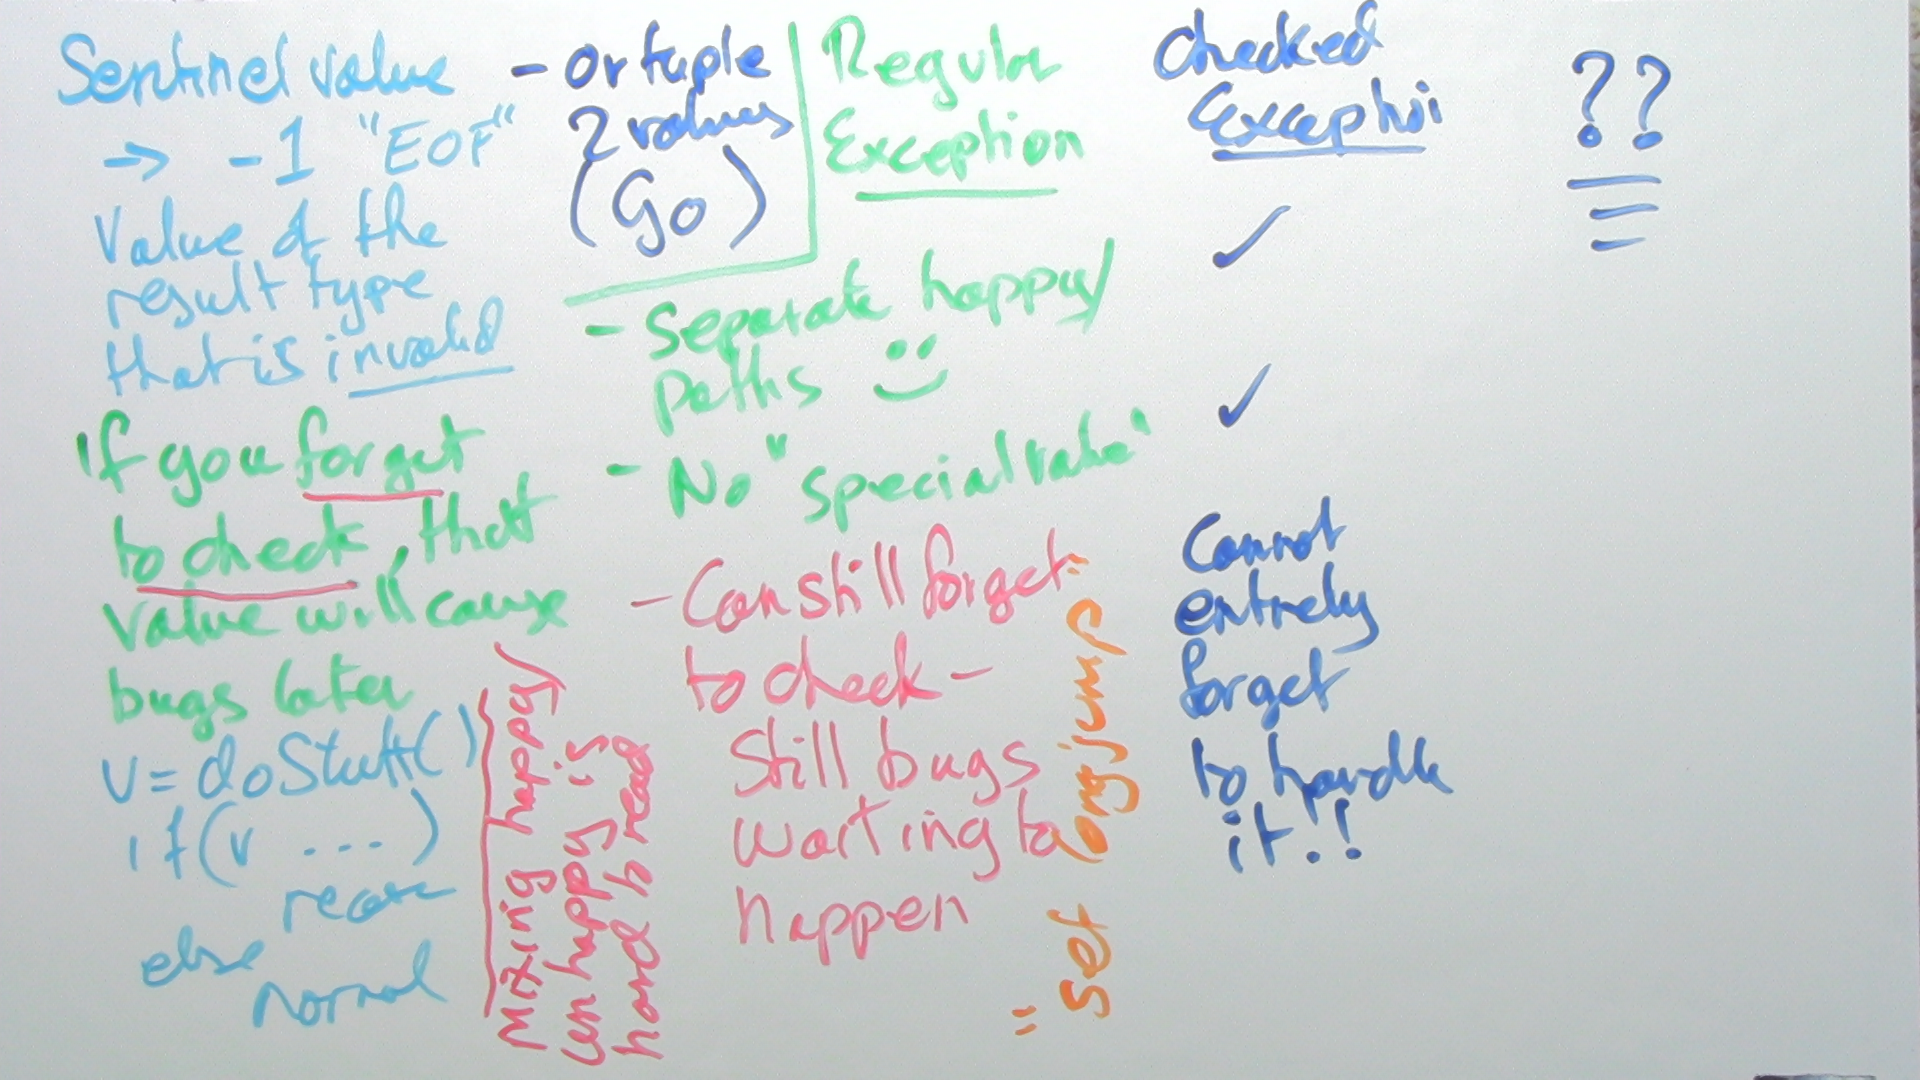 Sentinel value
→ -1 "EOF"
Value of the
result type
that is invalid
If you forget
to check, that
value will cause
bugs later
v = doStuff()
if (v ...)
else
normal
Mixing happy/
unhappy is
hard to read
- or tuple
2 values
(Go)
Regular
Exception
- Separate happy/
paths
- No "special value"
- Can still forget
to check -
Still bugs
waiting to
happen
"Set longjump"
Checked
Exception
✓
✓
Cannot
entirely
forget
to handle
it!!
??